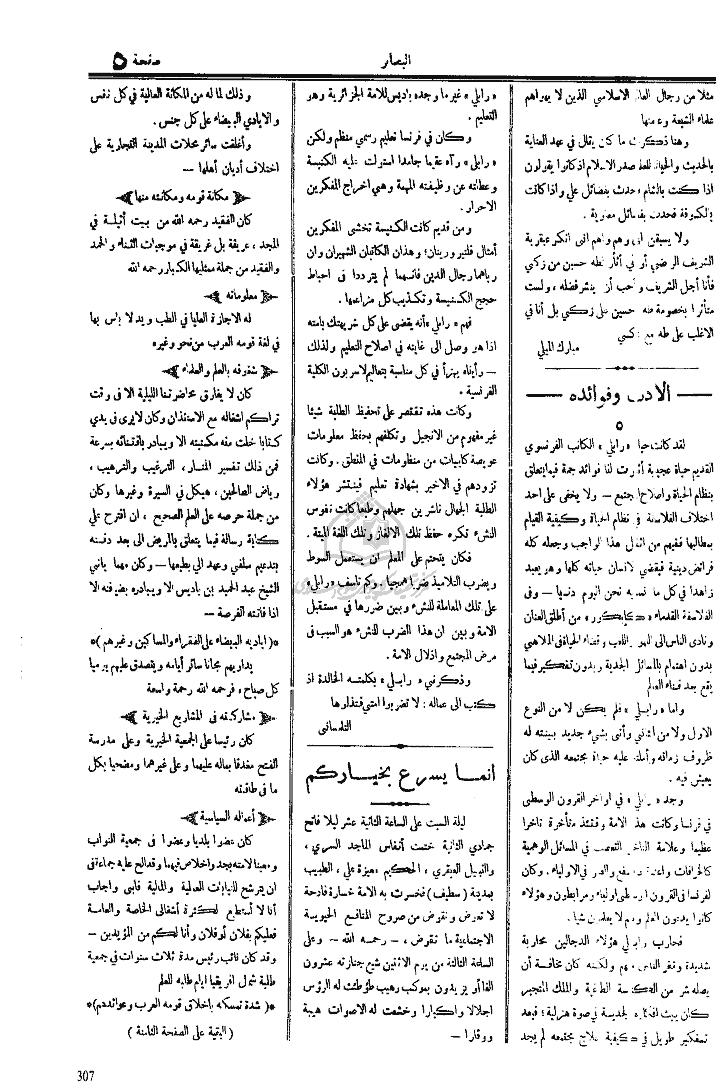 البصائر
صفحة ٥
مثلا من رجال العالم الاسلامي الذين لا يهواهم
علماء الشيعة وعامتها
وهنا ذكرت ما كان يقال في عهد العناية
بالحديث والحياة بلغة صدر الاسلام اذ كانوا يقولون
اذا كنت بالشام فحدث بفضائل علي واذا كانت
بالكوفة فحدث بفضائل معاوية .
ولا يسبقن الى وهم واهم انى انكر عبقرية
الشريف الرضي أو في آثار لطه حسين من زكي
فأنا أجل الشريف وأحب أن ينشر فضله ، ولست
متأثرا بخصومة طه حسين على زكي بل أنا في
الاغلب على طه مع زكي
مبارك الميلي
— الادب وفوائده —
٥
لقد كانت حياة « رابلي » الكاتب الفرنسوي
القديم حياة عجيبة أثمرت لنا فوائد جمة فيما يتعلق
بنظام الحياة واصلاح المجتمع — ولا يخفى على احد
اختلاف الفلاسفة في نظام الحياة وكيفية القيام
بمطالبها ففيهم من أهمل هذا الواجب وجعله كله
فرائض دينية فيقضي الانسان حياته كلها وهو يعبد
زاهدا في كل ما نسميه نحن اليوم دنيا — وفى
الفلاسفة القدماء « كابيكور » من أطلق العنان
ونادى الناس الى اللهو واللعب وقضاء الحياة في الملاهي
بدون اهتمام بالمسائل الجدية وبدون تفكير فيما
يقع بعد فناء العالم
واما « رابلي » فلم يكن لا من النوع
الاول ولا من الثاني وأتى بشيء جديد بينته له
ظروف زمانه وأملته عليه حياة مجتمعه الذى كان
يعيش فيه .
وجد « رابلي » في أواخر القرون الوسطى
في فرنسا وكانت هذه الامة وقتئذ متأخرة تأخرا
عظيما وعلامة التأخر التعصب في المسائل الوهمية
كالخرافات والغلو في الاولياء . وكان
لفرنسا في القرون الوسطى اولياء ومرابطون وهؤلاء
كانوا يدعون العلم وهم لا يعلمون شيئا .
فحارب رابلي هؤلاء الدجالين محاربة
شديدة ونفر الناس منهم ولكنه كان مخافة أن
يصله شر من الكنيسة الطاغية والملك المتجبر
كان يبث افكاره الجدية في صورة هزلية ؛ فبعد
تفكير طويل في كيفية علاج مجتمعه لم يجد
« رابلي » غير ما وجده باديس للامة الجزائرية وهو
التعليم .
وكان في فرنسا تعليم رسمي منظم ولكن
« رابلي » رآه عقيما جامدا استولت عليه الكنيسة
وعطلته عن وظيفته المهمة وهي اخراج المفكرين
الاحرار .
ومن قديم كانت الكنيسة تخشى المفكرين
أمثال فلتير ورينان ؛ وهذان الكاتبان الشهيران وان
رباهما رجال الدين فانهما لم يترددا في احباط
حجج الكنيسة وتكذيب كل مزاعمها .
فهم « رابلي » أنه يقضى على كل شر يهتك بامته
اذا هو وصل الى غايته في اصلاح التعليم ولذلك
— رأيناه يهزأ في كل مناسبة بتعاليم لاسربون الكلية
الفرنسية .
وكانت هذه تقتصر على تحفيظ الطلبة شيئا
غير مفهوم من الانجيل وتكلفهم بحفظ معلومات
عويصة كابيات من منظومات في المنطق . وكانت
تزودهم في الاخير بشهادة تعليم فينتشر هؤلاء
الطلبة الجهال ناشرين جهلهم وطبعا كانت نفوس
النشء تكره حفظ تلك الالغاز وتلك اللغة الميتة .
فكان يتحتم على المعلم ان يستعمل السوط
ويضرب التلاميذ ضربا همجيا . وكم تأسف « رابلي »
على تلك المعاملة للنشء وبين ضررها في مستقبل
الامة وبين ان هذا الضرب للنشء هو السبب فى
مرض المجتمع واذلال الامة .
وذكرني « رابلي » بكلمته الخالدة اذ
كتب الى عماله : لا تضربوا امتي فتذلوها
التلمساني
انما يسرع بخياركم
ليلة السبت على الساعة الثانية عشر ليلا فاتح
جمادى الثانية ختمت أنفاس الماجد السري ،
والنبيل العبقري ، الحكيم ، ميزة علي ، الطبيب
بمدينة ( سطيف ) فخسرت به الامة خسارة فادحة
لا تعوض ونقوض من صروح المنافع الحيوية
الاجتماعية ما تقوض ، — رحمه الله — وعلى
الساعة الثالثة من يوم الاثنين شيع جنازته عشرون
الفا أو يزيدون بموكب رهيب طؤطئت له الرؤس
اجلالا واكبارا وخشعت له الاصوات هيبة
ووقارا —
وذلك لما له من المكانة العالية في كل نفس
والايادي البيضاء على كل جنس .
وأغلقت سائر محلات المدينة التجارية على
اختلاف أديان أهلها —
﴿ مكانة قومه ومكانته منها ﴾
كان الفقيد رحمه الله من بيت أثيلة في
المجد ، عريقة بل غريقة في موجبات الثناء والحمد
والفقيد من جملة ممثليها الكبار رحمه الله
﴿ معلوماته ﴾
له الاجازة العليا في الطب ويد لا باس بها
في لغة قومه العرب من نحو وغيره
﴿ شغوفه بالعلم والعلماء ﴾
كان لا يفارق محاضرتنا الليلية الا فى وقت
تراكم اشغاله مع الاستئذان وكان لا يرى فى يدي
كتابا خلت منه مكتبته الا ويبادر باقتنائه بسرعة
فمن ذلك تفسير المنار ، الترغيب والترهيب ،
رياض الصالحين ، هيكل في السيرة وغيرها وكان
من جملة حرصه على العلم الصحيح ، ان اقترح علي
كتابة رسالة فيما يتعلق بالمريض الى بعد دفنه
بتدعيم سلفي وعهد الي بطبعها — وكان مهما ياتي
الشيخ عبد الحميد بن باديس الا ويبادره بضيافته الا
اذا فاتته الفرصة —
*( اياديه البيضاء على الفقراء والمساكين وغيرهم )*
يداويهم مجانا سائر أيامه ويتصدق عليهم يوميا
كل صباح ، فرحمه الله رحمة واسعة
﴿ مشاركته في المشاريع الخيرية ﴾
كان رئيسا على الجمعية الخيرية وعلى مدرسة
الفتح مغدقا بماله عليهما وعلى غيرهما ومضحيا بكل
ما فى طاقته
﴿ أعماله السياسية ﴾
كان عضوا بلديا وعضوا فى جمعية النواب
ومعينا لامته بجد واخلاص فيهما وقد الح عليه جماعة في
ان يترشح للنيابات العمالية والمالية فابى واجاب
أنا لا أستطيع لكثرة أشغالى الخاصة والعامة
فعليكم بفلان أو فلان وأنا لكم من المؤيدين —
وقد كان نائب رئيس مدة ثلاث سنوات في جمعية
طلبة شمال افريقيا ايام طلبه للعلم
*( شدة تمسكه باخلاق قومه العرب وعوائدهم )*
( البقية على الصفحة الثامنة )
307